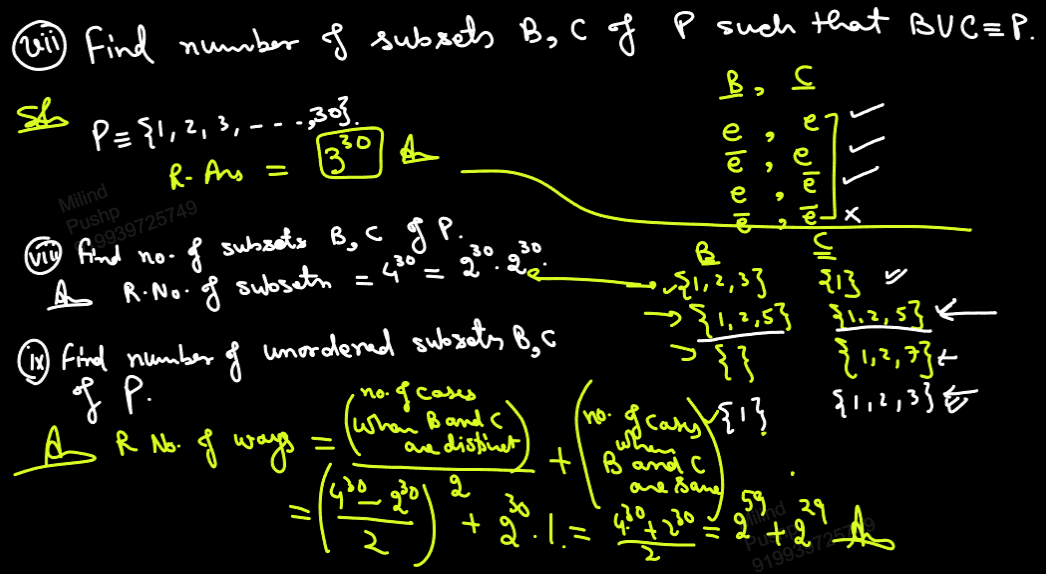 (vii) Find number of subsets B, C of P such that B∪C≡P.
Sol
P≡{1, 2, 3, - - - -, 30}.
R. Ans = 3^30 A
B, C
e , e ✓
e̅ , e ✓
e , e̅ ✓
e̅ , e̅ ×
(viii) Find no. of subsets B, C of P.
A R. No. of subsets = 4^30 = 2^30 . 2^30.
B C
{1, 2, 3} {1}
{1, 2, 5} {1, 2, 5}
{ } {1, 2, 7}
{1} {1, 2, 3}
(ix) Find number of unordered subsets B, C
of P.
A R No. of ways = (no. of cases when B and C are distinct) / 2 + (no. of cases when B and C are same)
= ((4^30 - 2^30) / 2) + 2^30 . 1. = (4^30 + 2^30) / 2 = 2^59 + 2^29 A
Milind
Pushp
919939725749
Milind
Pushp
919939725749